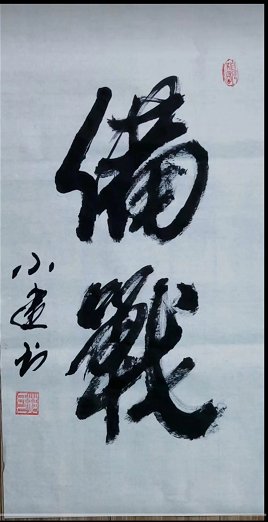 備戰
小建书